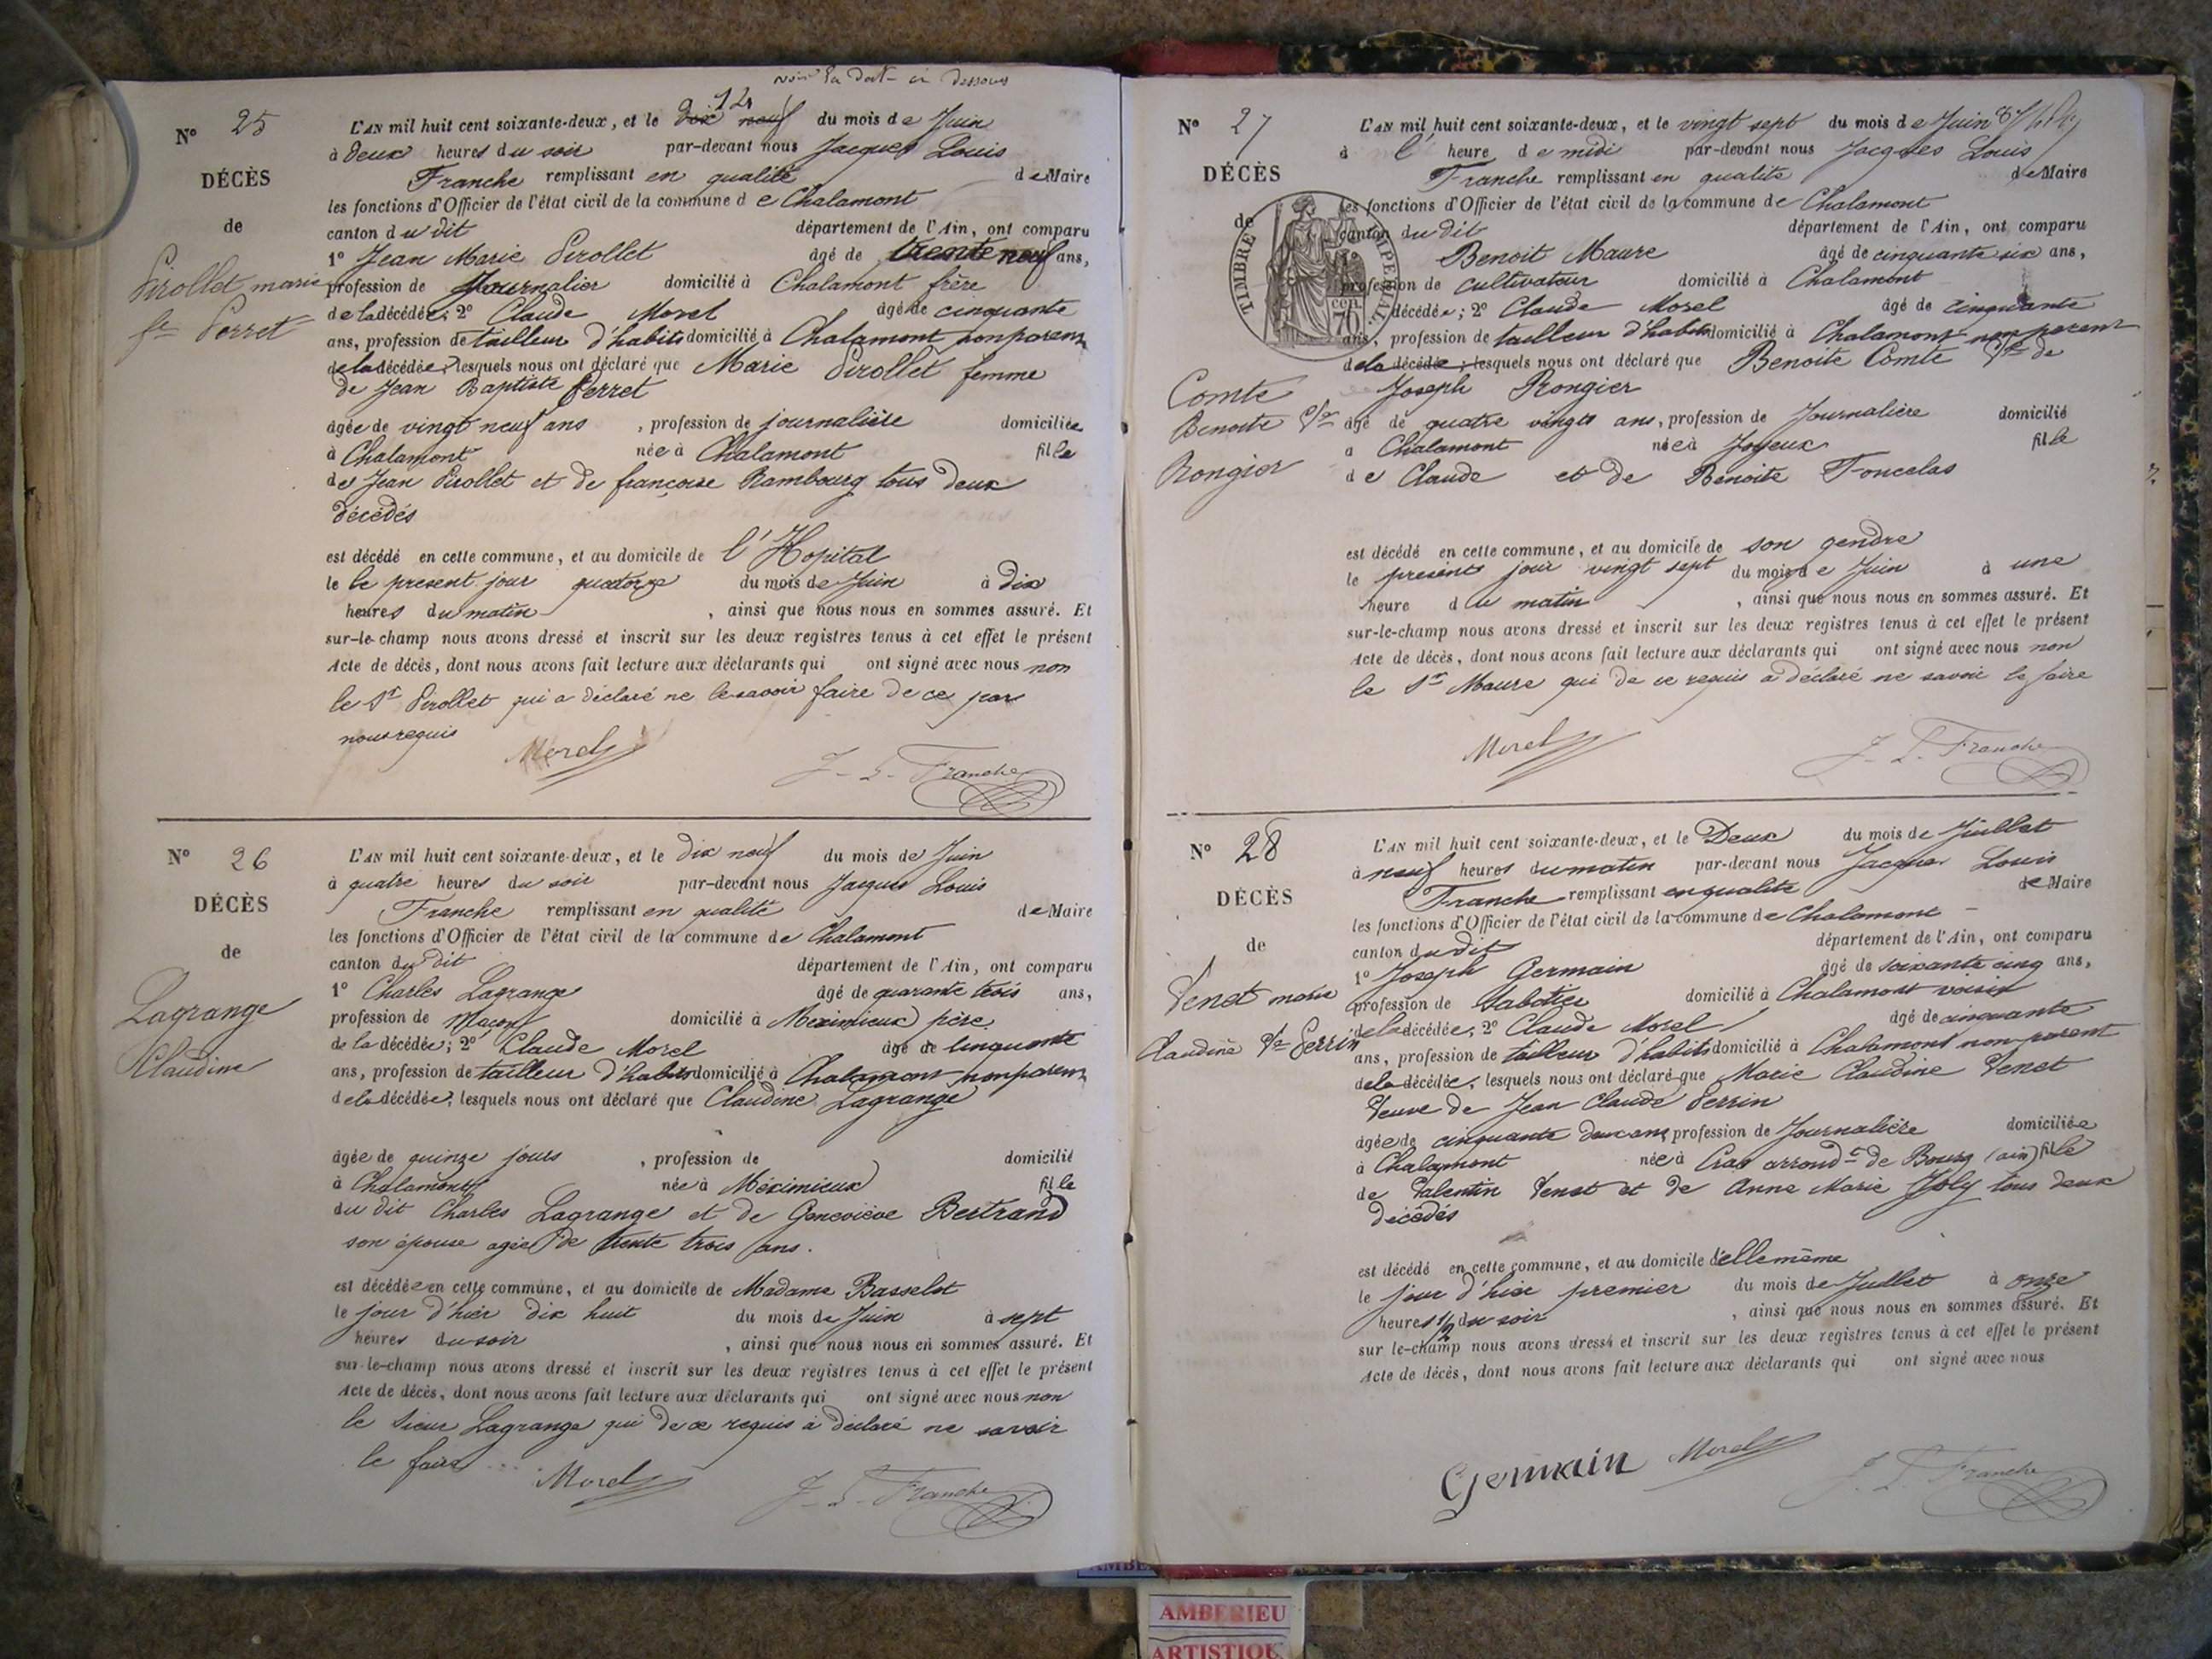 voir la dat- ci dessous
N° 25
DÉCÈS
de
Pirollet marie
fe Perret
12
L'AN mil huit cent soixante-deux, et le dix neuf du mois de Juin
à deux heures du soir par-devant nous Jacques Louis
Franche remplissant en qualité de Maire
les fonctions d'Officier de l'état civil de la commune de Chalamont
canton du dit département de l'Ain, ont comparu
1° Jean Marie Pirollet âgé de trente neuf ans,
profession de Journalier domicilié à Chalamont frère
de la décédée; 2° Claude Morel âgé de cinquante
ans, profession de tailleur d'habits domicilié à Chalamont non parent
de la décédée, lesquels nous ont déclaré que Marie Pirollet femme
de Jean Baptiste Perret
âgée de vingt neuf ans , profession de journalière domiciliée
à Chalamont née à Chalamont fille
de Jean Pirollet et de françoise Rambourg tous deux
décédés
est décédé en cette commune, et au domicile de l'Hopital
le le present jour quatorze du mois de Juin à dix
heures du matin , ainsi que nous nous en sommes assuré. Et
sur-le-champ nous avons dressé et inscrit sur les deux registres tenus à cet effet le présent
Acte de décès, dont nous avons fait lecture aux déclarants qui ont signé avec nous non
le Sr Pirollet qui a déclaré ne le savoir faire de ce par
nous requis
Morel J-L-Franche
N° 26
DÉCÈS
de
Lagrange
Claudine
L'AN mil huit cent soixante-deux, et le dix neuf du mois de Juin
à quatre heures du soir par-devant nous Jacques Louis
Franche remplissant en qualité de Maire
les fonctions d'Officier de l'état civil de la commune de Chalamont
canton du dit département de l'Ain, ont comparu
1° Charles Lagrange âgé de quarante trois ans,
profession de Maçon domicilié à Meximieux père
de la décédée; 2° Claude Morel âgé de cinquante
ans, profession de tailleur d'habits domicilié à Chalamont non parent
de la décédée, lesquels nous ont déclaré que Claudine Lagrange
âgée de quinze jours , profession de domicilié
à Chalamont née à Méximieux fille
du dit Charles Lagrange et de Geneviève Bertrand
son épouse agée de trente trois ans.
est décédée en cette commune, et au domicile de Madame Basselot
le jour d'hier dix huit du mois de Juin à sept
heures du soir , ainsi que nous nous en sommes assuré. Et
sur-le-champ nous avons dressé et inscrit sur les deux registres tenus à cet effet le présent
Acte de décès, dont nous avons fait lecture aux déclarants qui ont signé avec nous non
le sieur Lagrange qui de ce requis a déclaré ne savoir
le faire
Morel J-L-Franche
N° 27
DÉCÈS
de
TIMBRE IMPERIAL
70 cen
Comte
Benoite Ve
Rongier
L'AN mil huit cent soixante-deux, et le vingt sept du mois de Juin
à l' heure de midi par-devant nous Jacques Louis
Franche remplissant en qualité de Maire
les fonctions d'Officier de l'état civil de la commune de Chalamont
canton du dit département de l'Ain, ont comparu
Benoit Maure âgé de cinquante six ans,
profession de cultivateur domicilié à Chalamont
décédée; 2° Claude Morel âgé de cinquante
ans, profession de tailleur d'habits domicilié à Chalamont non parent
de la décédée; lesquels nous ont déclaré que Benoite Comte Ve de
Joseph Rongier
âgé de quatre vingts ans, profession de Journalière domicilié
à Chalamont née à Joyeux fille
de Claude et de Benoite Foncelas
est décédé en cette commune, et au domicile de son gendre
le présent jour vingt sept du mois de Juin à une
heure du matin , ainsi que nous nous en sommes assuré. Et
sur-le-champ nous avons dressé et inscrit sur les deux registres tenus à cet effet le présent
Acte de décès, dont nous avons fait lecture aux déclarants qui ont signé avec nous non
le Sr Maure qui de ce requis a déclaré ne savoir le faire
Morel J-L-Franche
N° 28
DÉCÈS
de
Venet marie
Claudine Ve Perrin
L'AN mil huit cent soixante-deux, et le Deux du mois de Juillet
à neuf heures du matin par-devant nous Jacques Louis
Franche remplissant en qualité de Maire
les fonctions d'Officier de l'état civil de la commune de Chalamont
canton du dit département de l'Ain, ont comparu
1° Joseph Germain âgé de soixante cinq ans,
profession de Sabotier domicilié à Chalamont voisin
de la décédée; 2° Claude Morel âgé de cinquante
ans, profession de tailleur d'habits domicilié à Chalamont non parent
de la décédée, lesquels nous ont déclaré que Marie Claudine Venet
Veuve de Jean Claude Perrin
âgée de cinquante deux ans profession de Journalière domiciliée
à Chalamont née à Cras arrondt de Bourg (ain) fille
de Valentin Venet et de Anne Marie Joly tous deux
décédés
est décédé en cette commune, et au domicile d'elle même
le jour d'hier premier du mois de Juillet à onze
heures 1/2 du soir , ainsi que nous nous en sommes assuré. Et
sur le-champ nous avons dressé et inscrit sur les deux registres tenus à cet effet le présent
Acte de décès, dont nous avons fait lecture aux déclarants qui ont signé avec nous
Germain Morel J-L-Franche
AMBERIEU
ARTISTIQU